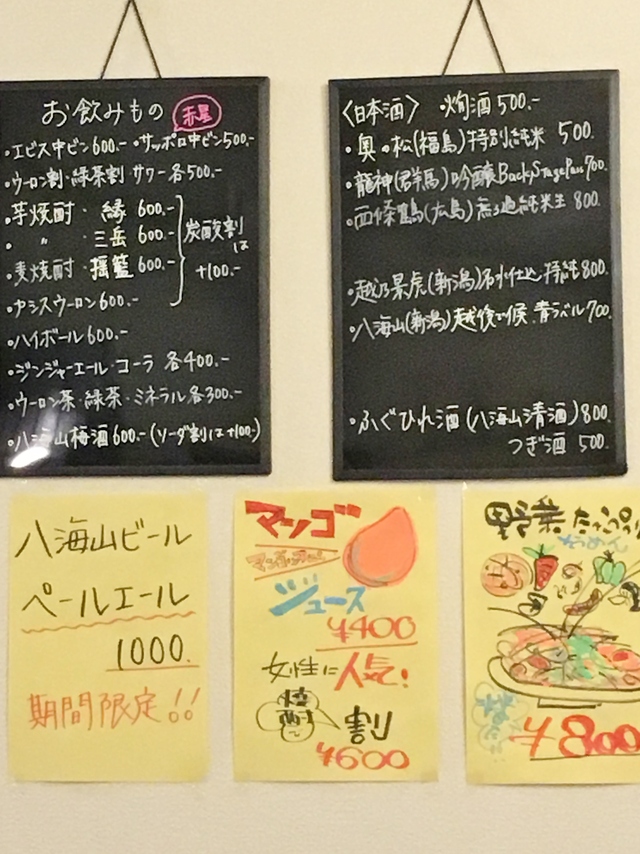 お飲みもの 赤星
・エビス中ビン600.- ・サッポロ中ビン500.-
・ウーロン割・緑茶割 サワー 各500.-
・芋焼酎・ 縁 600.-
・ 〃 ・ 三岳 600.-
・麦焼酎・揺籃 600.-
炭酸割
は
+100.-
・カシスウーロン600.-
・ハイボール600.-
・ジンジャーエール・コーラ 各400.-
・ウーロン茶・緑茶・ミネラル・各300.-
・八海山梅酒600.-(ソーダ割は+100.)
〈日本酒〉 ・燗酒500.-
・奥の松(福島)特別純米 500.
・龍神(群馬)吟醸BackyStagePass700.
・(広島)無ろ過純米生 800.
・越乃景虎(新潟)名水仕込 特純800.
・八海山(新潟)越後で候 青ラベル700.
・ふぐひれ酒(八海山清酒)800
つぎ酒 500.
八海山ビール
ペールエール
1000.
期間限定!!
マンゴ
ジュース
¥400
女性に人気!
焼酎 割
¥600
野菜たっぷり
らうめん
¥800